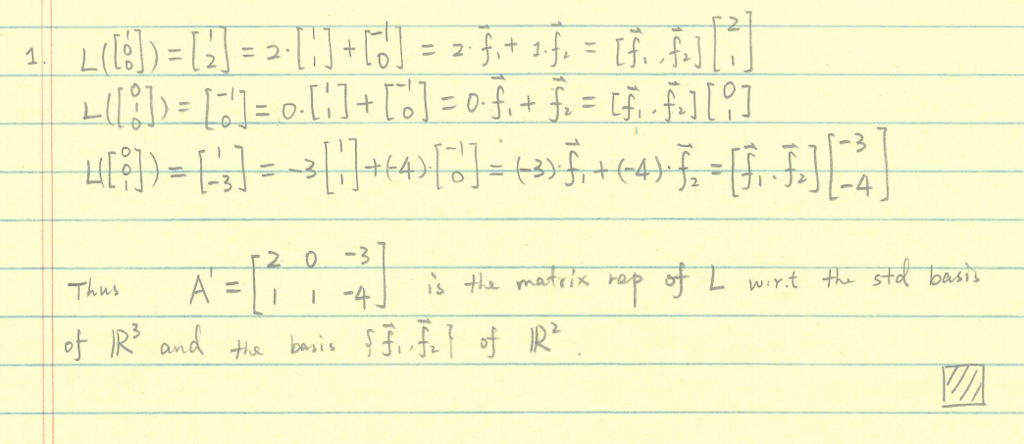 1. L([1 0 0]) = [1 2] = 2·[1 1] + [-1 0] = 2·f⃗₁ + 1·f⃗₂ = [f⃗₁, f⃗₂][2 1]
L([0 1 0]) = [-1 0] = 0·[1 1] + [-1 0] = 0·f⃗₁ + f⃗₂ = [f⃗₁, f⃗₂][0 1]
L([0 0 1]) = [1 -3] = -3[1 1] + (-4)·[-1 0] = (-3)·f⃗₁ + (-4)·f⃗₂ = [f⃗₁, f⃗₂][-3 -4]
Thus A' = [2 0 -3; 1 1 -4] is the matrix rep of L w.r.t the std basis
of ℝ³ and the basis {f⃗₁, f⃗₂} of ℝ².